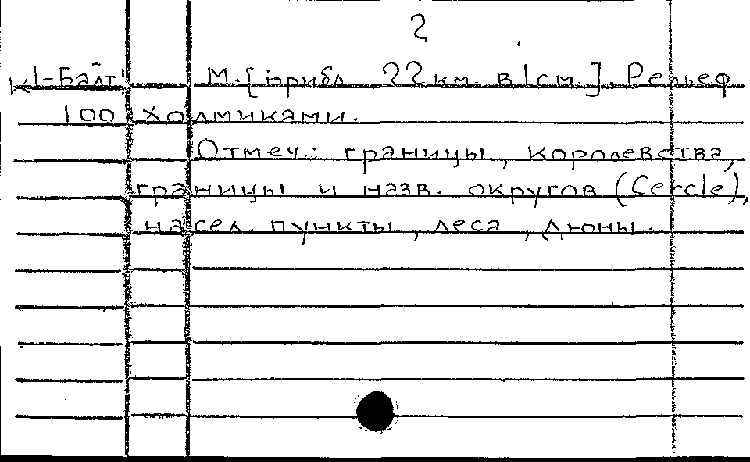 2
К1-Балт М.[прибл 22 км. в 1см.]. Рельеф
100 холмиками.
Отмеч.: границы, королевства,
границы и назв. округов (Cercle),
насел. пункты, леса, дюны.